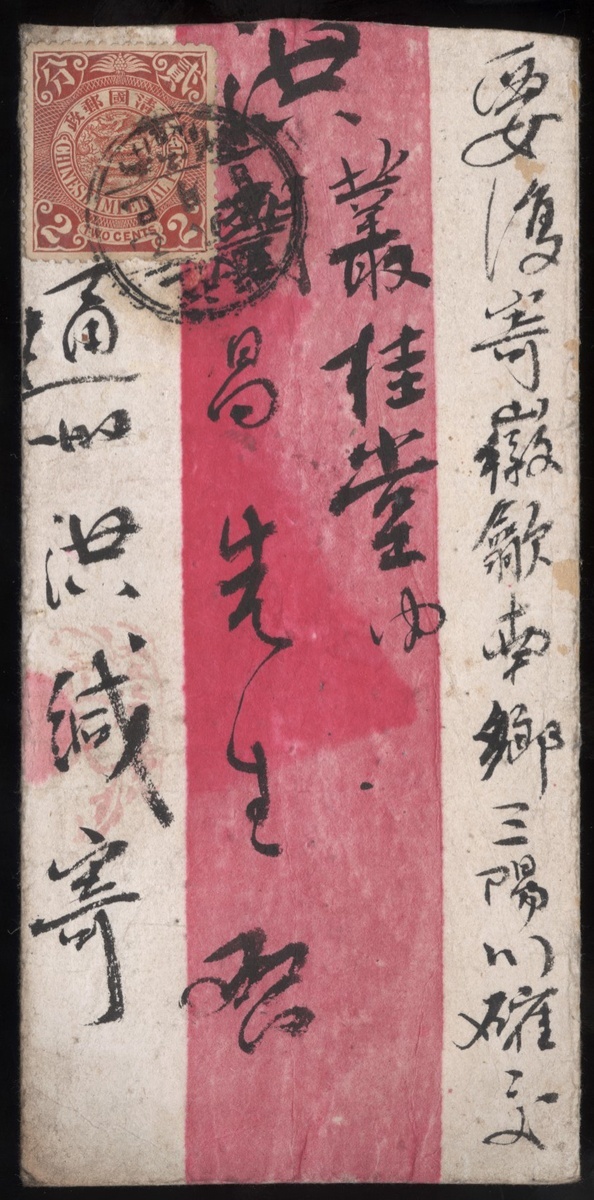 要復寄徽歙南鄉三陽川確交
洪叢桂堂內
昌先生啓
通州洪緘寄
大清國郵政
貳分
CHINESE IMPERIAL
2 2
TWO CENTS